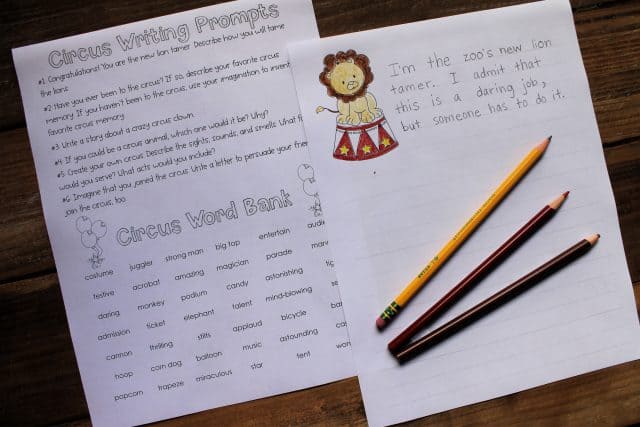 Circus Writing Prompts
#1 Congratulations! You are the new lion tamer. Describe how you will tame
the lions.
#2 Have you ever been to the circus? If so, describe your favorite circus
memory. If you haven't been to the circus, use your imagination to invent
favorite circus memory.
#3 Write a story about a crazy circus clown.
#4 If you could be a circus animal, which one would it be? Why?
#5 Create your own circus. Describe the sights, sounds, and smells. What
would you serve? What acts would you include?
#6 Imagine that you joined the circus. Write a letter to persuade your
join the circus, too.
Circus Word Bank
costume juggler strong man big top entertain
festive acrobat amazing magician parade
daring monkey podium candy astonishing
admission ticket elephant talent mind-blowing
cannon thrilling stilts applaud bicycle
hoop corn dog balloon music astounding
popcorn trapeze miraculous star tent
I'm the zoo's new lion
tamer. I admit that
this is a daring job,
but someone has to do it.